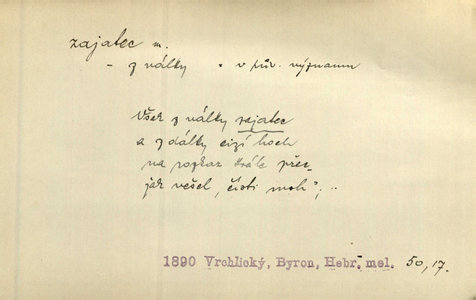 zajatec m.
- z války • v pův. významu
Však z války zajatec
a z dálky cizí hoch
na rozkaz krále přec
jak vešel, čísti moh";..
1890 Vrchlický, Byron, Hebr. mel. 50,17.